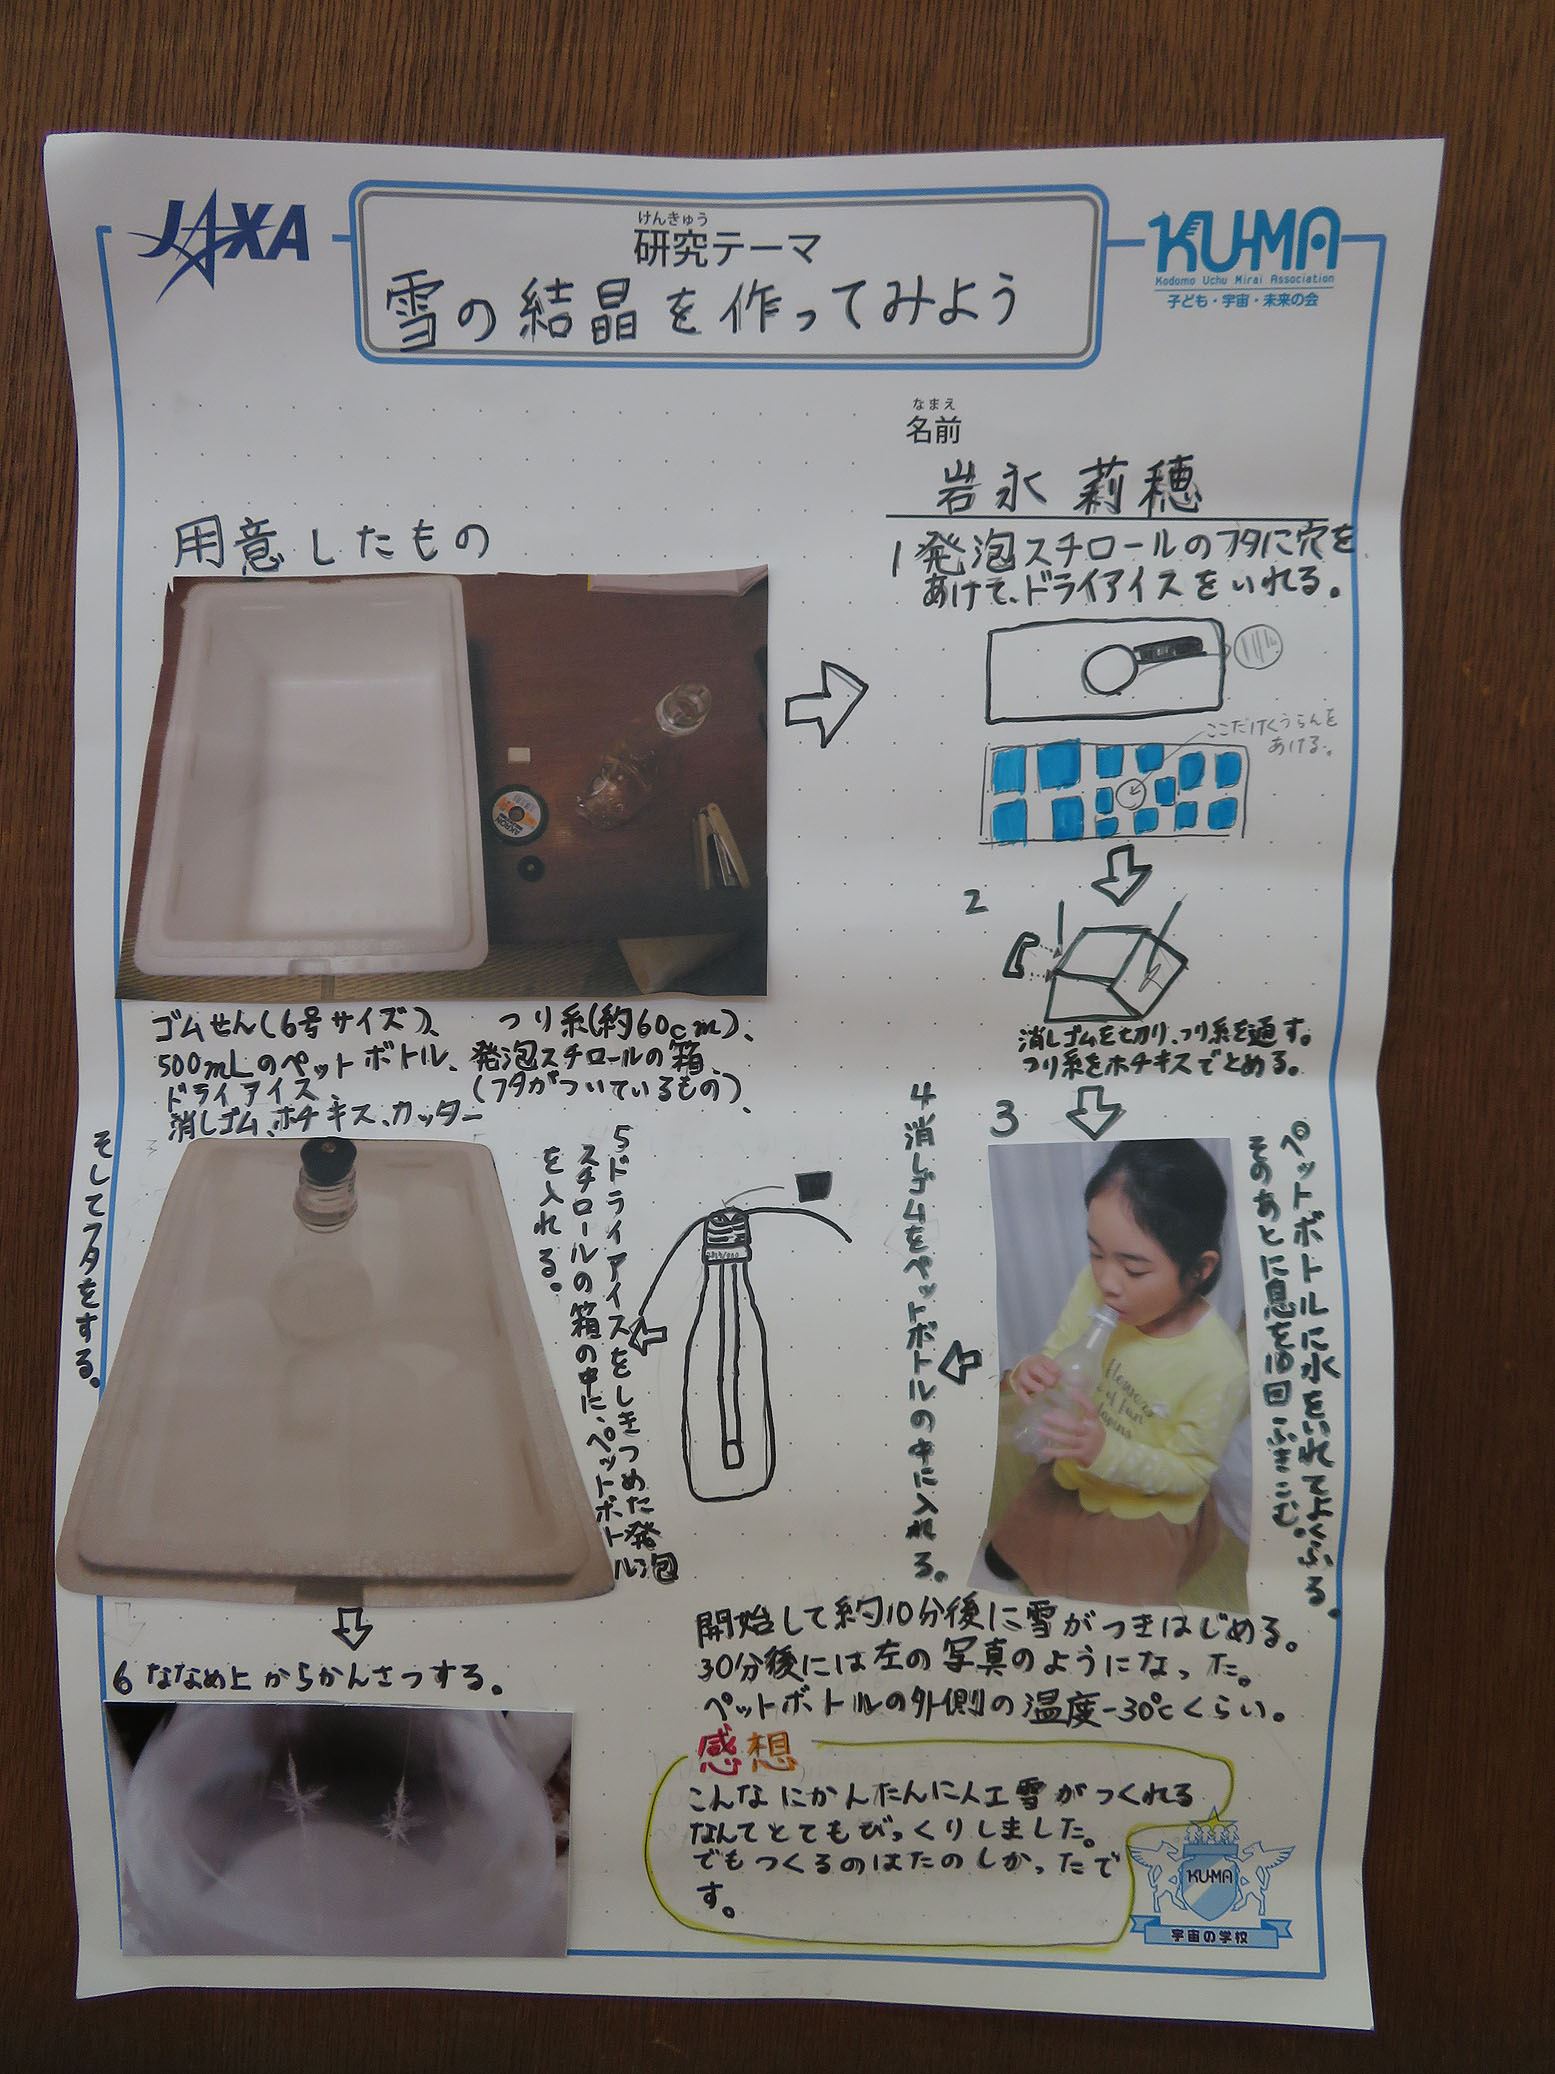 JAXA
けんきゅう
研究テーマ
雪の結晶を作ってみよう
KU-MA
Kodomo Uchu Mirai Association
子ども・宇宙・未来の会
なまえ
名前
岩永 莉穂
用意したもの
ゴムせん(6号サイズ)、
500mLのペットボトル、
ドライアイス、
消しゴム、ホチキス、カッター
つり糸(約60cm)、
発泡スチロールの箱、
(フタがついているもの)、
1 発泡スチロールのフタに穴を
あけて、ドライアイスをいれる。
ここだけくうらんを
あける。
2
消しゴムを切り、つり糸を通す。
つり糸をホチキスでとめる。
3
ペットボトルに水をいれてよくふる。
そのあとに息を10回ふきこむ。
4 消しゴムをペットボトルの中に入れる。
5 ドライアイスをしきつめた発泡
スチロールの箱の中に、ペットボトル
を入れる。
そしてフタをする。
6 ななめ上からかんさつする。
開始して約10分後に雪がつきはじめる。
30分後には左の写真のようになった。
ペットボトルの外側の温度-30℃くらい。
感想
こんなにかんたんに人工雪がつくれる
なんてとてもびっくりしました。
でもつくるのはたのしかったで
す。
KU-MA
宇宙の学校
AKRON